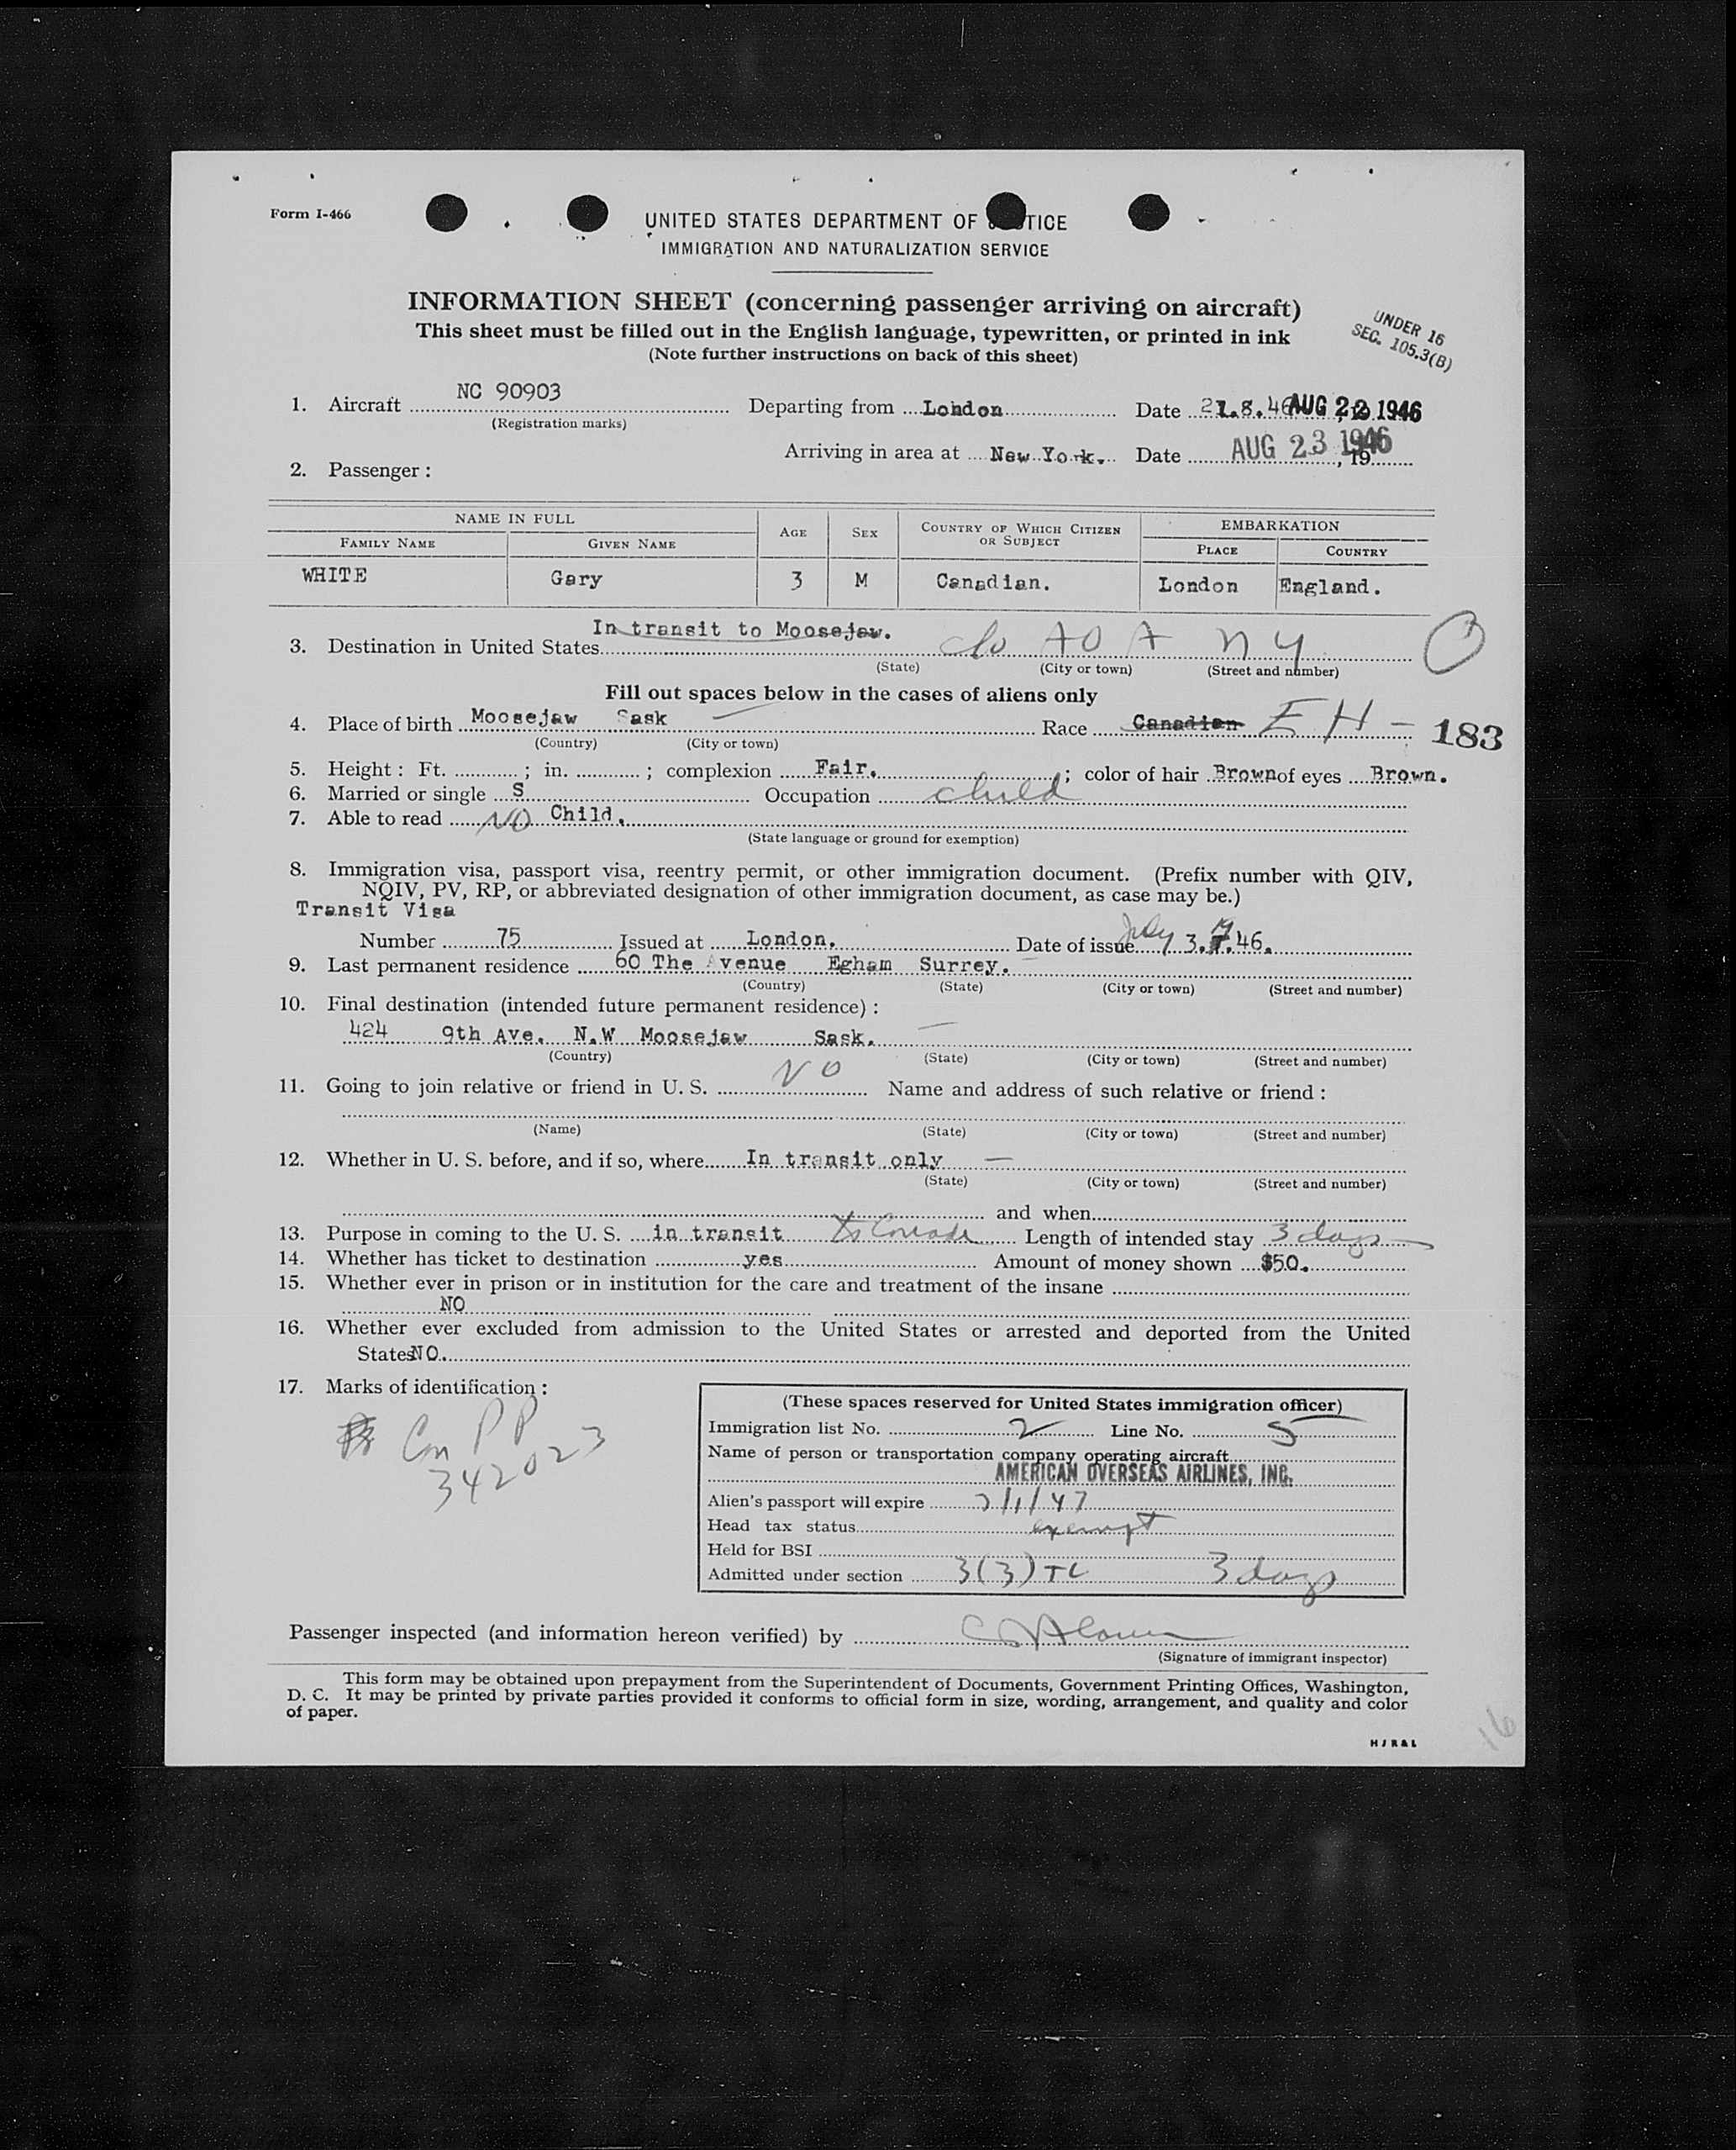 Form I-466
UNITED STATES DEPARTMENT OF TICE
IMMIGRATION AND NATURALIZATION SERVICE
INFORMATION SHEET (concerning passenger arriving on aircraft)
This sheet must be filled out in the English language, typewritten, or printed in ink
(Note further instructions on back of this sheet)
UNDER 16
SEC. 105.3(B)
1. Aircraft NC 90903 Departing from London Date 21.8.46 AUG 22 1946
(Registration marks)
Arriving in area at New York. Date AUG 23 1946, 19
2. Passenger:
NAME IN FULL AGE SEX COUNTRY OF WHICH CITIZEN OR SUBJECT EMBARKATION
FAMILY NAME GIVEN NAME PLACE COUNTRY
WHITE Gary 3 M Canadian. London England.
In transit to Moosejaw.
3. Destination in United States c/o AOA NY
(State) (City or town) (Street and number)
Fill out spaces below in the cases of aliens only
4. Place of birth Moosejaw Sask Race Canadian EH - 183
(Country) (City or town)
5. Height: Ft. ; in. ; complexion Fair. ; color of hair Brown of eyes Brown.
6. Married or single S Occupation child
7. Able to read NO Child.
(State language or ground for exemption)
8. Immigration visa, passport visa, reentry permit, or other immigration document. (Prefix number with QIV,
NQIV, PV, RP, or abbreviated designation of other immigration document, as case may be.)
Transit Visa
Number 75 Issued at London. Date of issue July 3. 46.
9. Last permanent residence 60 The Avenue Egham Surrey.
(Country) (State) (City or town) (Street and number)
10. Final destination (intended future permanent residence):
424 9th Ave. N.W Moosejaw Sask.
(Country) (State) (City or town) (Street and number)
11. Going to join relative or friend in U. S. NO Name and address of such relative or friend:
(Name) (State) (City or town) (Street and number)
12. Whether in U. S. before, and if so, where In transit only
(State) (City or town) (Street and number)
and when
13. Purpose in coming to the U. S. in transit to Canada Length of intended stay 3 days
14. Whether has ticket to destination yes Amount of money shown $50.
15. Whether ever in prison or in institution for the care and treatment of the insane
NO
16. Whether ever excluded from admission to the United States or arrested and deported from the United
States NO.
17. Marks of identification:
Can PP
342023
(These spaces reserved for United States immigration officer)
Immigration list No. 2 Line No. 5
Name of person or transportation company operating aircraft
AMERICAN OVERSEAS AIRLINES, INC.
Alien's passport will expire 7/1/47
Head tax status exempt
Held for BSI
Admitted under section 3(3) TC 3 days
Passenger inspected (and information hereon verified) by
(Signature of immigrant inspector)
This form may be obtained upon prepayment from the Superintendent of Documents, Government Printing Offices, Washington,
D. C. It may be printed by private parties provided it conforms to official form in size, wording, arrangement, and quality and color
of paper.
H J R & L
16